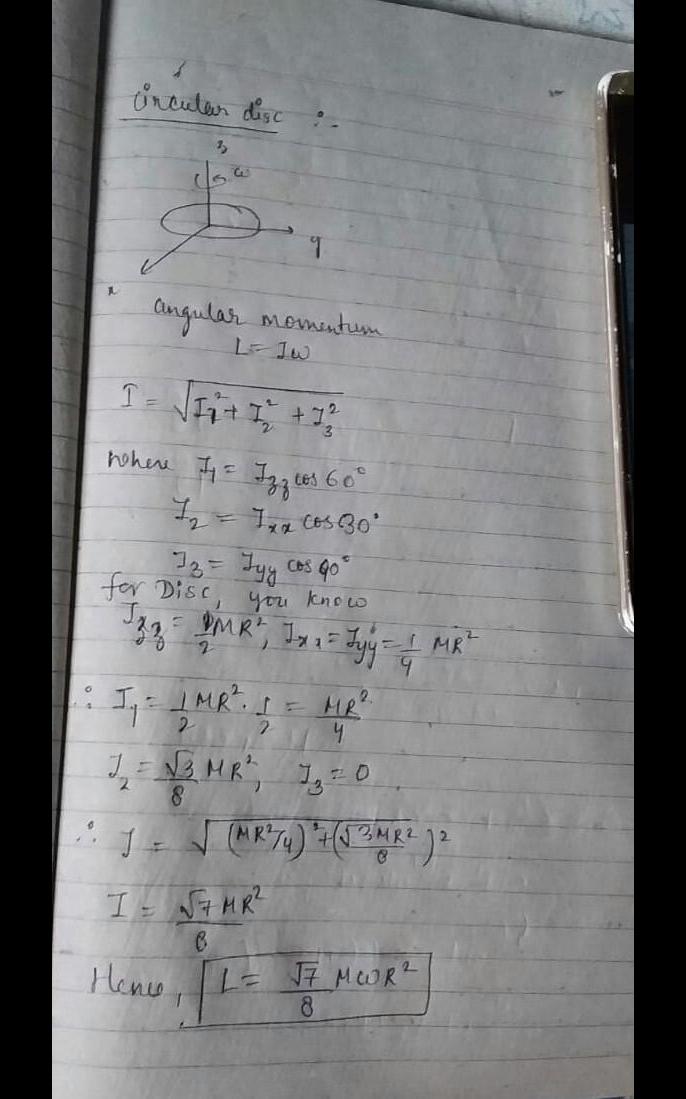 circular disc :-
z
ω
y
x
angular momentum
L = Iω
I = √(I₁² + I₂² + I₃²)
where I₁ = I_zz cos 60°
I₂ = I_xx cos 30°
I₃ = I_yy cos 90°
for Disc, you know
I_zz = 1/2 MR², I_xx = I_yy = 1/4 MR²
∴ I₁ = 1/2 MR² · 1/2 = MR²/4
I₂ = √3/8 MR², I₃ = 0
∴ I = √(MR²/4)² + (√3MR²/8)²
I = √7 MR²/8
Hence, L = √7/8 MωR²